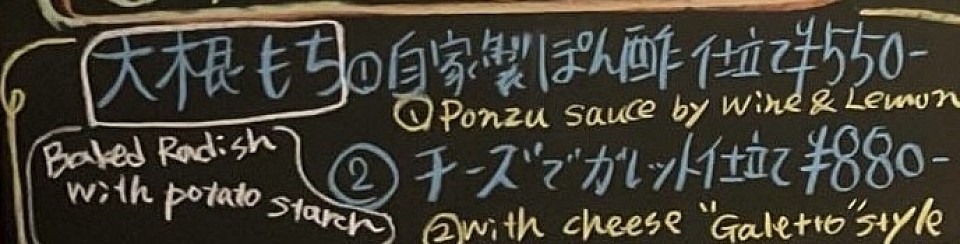 大根もち ①自家製ぽん酢仕立て ¥550-
①Ponzu sauce by Wine & Lemon
Baked Radish
with potato starch
② チーズでガレット仕立て ¥880-
②with cheese "Galetto" style